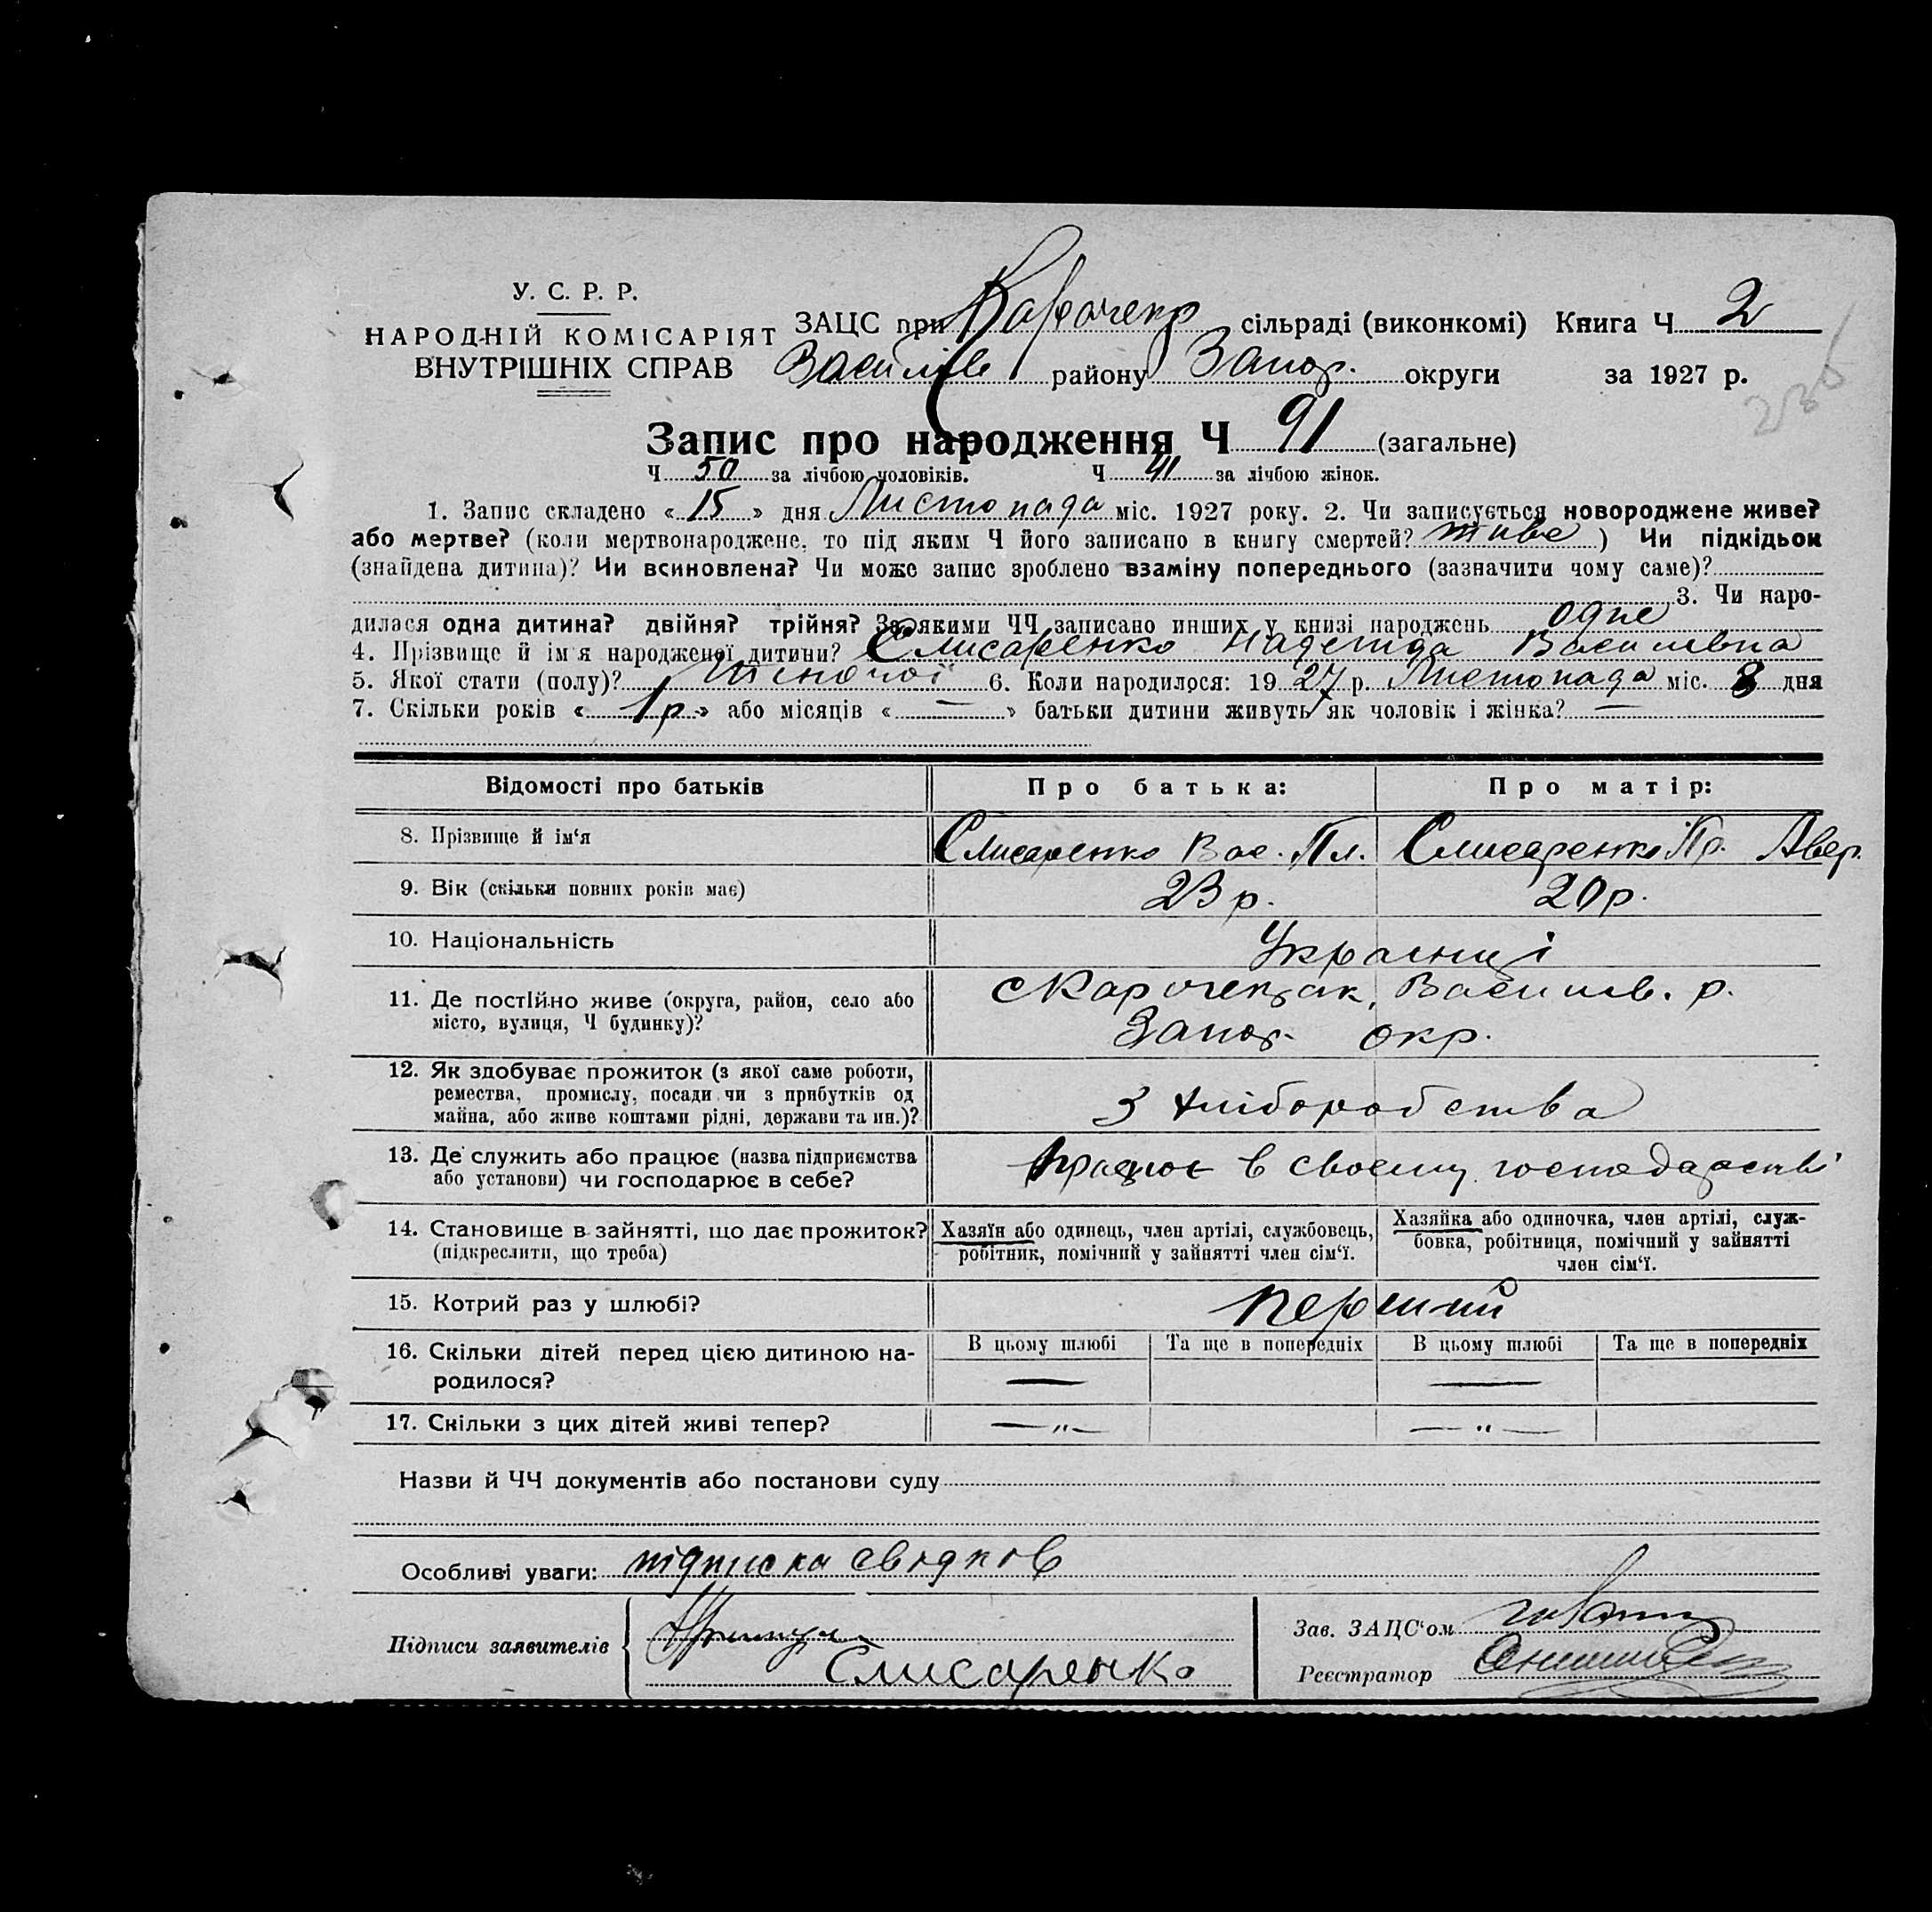 У. С. Р. Р.
НАРОДНІЙ КОМІСАРІЯТ
ВНУТРІШНІХ СПРАВ
ЗАЦС при сільраді (виконкомі) Книга Ч 2
Василів району Запор. округи за 1927 р.
236
Запис про народження Ч 91 (загальне)
Ч 50 за лічбою чоловіків. Ч 41 за лічбою жінок.
1. Запис складено « 15 » дня Листопада міс. 1927 року. 2. Чи записується новороджене живе?
або мертве? (коли мертвонароджене, то під яким Ч його записано в книгу смертей? живе ) Чи підкідьок
(знайдена дитина)? Чи всиновлена? Чи може запис зроблено взаміну попереднього (зазначити чому саме)?
3. Чи наро-
дилася одна дитина? двійня? трійня? За якими ЧЧ записано инших у книзі народжень одне
4. Прізвище й ім'я народженої дитини? Слисаренко Надежда Василівна
5. Якої стати (полу)? Жіночої 6. Коли народилося: 19 27 р. Листопада міс. 8 дня
7. Скільки років « 1 р » або місяців « — » батьки дитини живуть як чоловік і жінка? —
Відомості про батьків Про батька: Про матір:
8. Прізвище й ім'я Слисаренко Вас. Пл. Слисаренко Пр. Авер.
9. Вік (скільки повних років має) 23 р. 20 р.
10. Національність Українці
11. Де постійно живе (округа, район, село або
місто, вулиця, Ч будинку)?
Василів. р.
Запор. окр.
12. Як здобуває прожиток (з якої саме роботи,
ремества, промислу, посади чи з прибутків од
майна, або живе коштами рідні, держави та ин.)?
З хліборобства
13. Де служить або працює (назва підприємства
або установи) чи господарює в себе?
Працює в своєму господарстві
14. Становище в зайнятті, що дає прожиток?
(підкреслити, що треба)
Хазяїн або одинець, член артілі, службовець,
робітник, помічний у зайнятті член сім'ї.
Хазяйка або одиночка, член артілі, служ-
бовка, робітниця, помічний у зайнятті
член сім'ї.
15. Котрий раз у шлюбі? перший
16. Скільки дітей перед цією дитиною на-
родилося?
В цьому шлюбі Та ще в попередніх В цьому шлюбі Та ще в попередніх
— —
17. Скільки з цих дітей живі тепер? — „ — — „ —
Назви й ЧЧ документів або постанови суду
Особливі уваги: підписка свідків
Підписи заявителів
Слисаренко
Зав. ЗАЦС'ом
Реєстратор